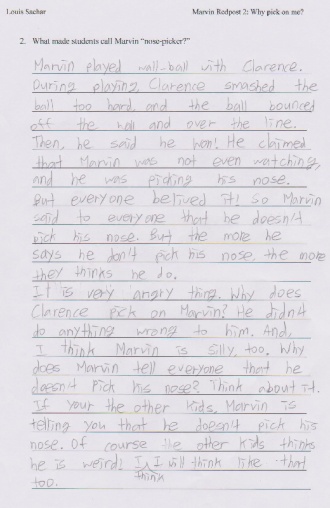 Louis Sachar Marvin Redpost 2: Why pick on me?
2. What made students call Marvin "nose-picker?"
Marvin played wall-ball with Clarence.
During playing Clarence smashed the
ball too hard, and the ball bounced
off the wall and over the line.
Then, he said he won! He claimed
that Marvin was not even watching,
and he was picking his nose.
But everyone belived it! So Marvin
said to everyone that he doesn't
pick his nose. But the more he
says he don't pick his nose, the more
they thinks he do.
It is very angry thing. Why does
Clarence pick on Marvin? He didn't
do anything wrong to him. And,
I think Marvin is silly, too. Why
does Marvin tell everyone that he
doesn't Pick his nose? Think about it.
If your the other kids, Marvin is
telling you that he doesn't pick his
nose. Of course the other kids thinks
he is weird! I think I will think like that
too.